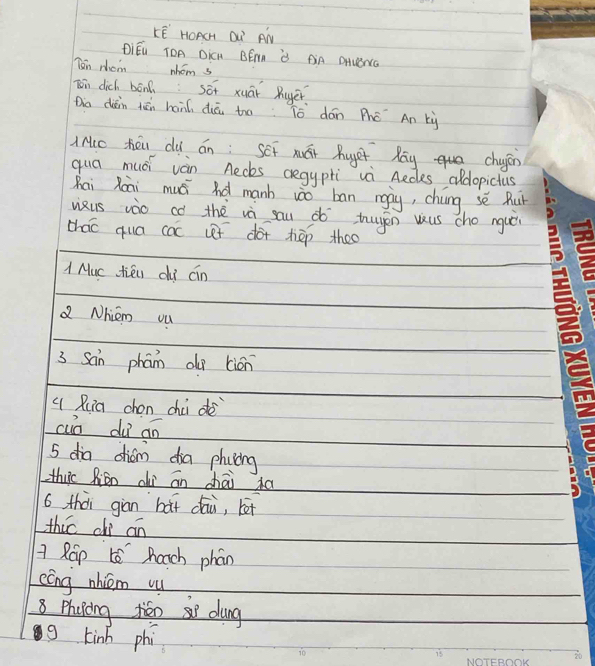 KẾ HOẠCH DỰ ÁN
ĐIỀU TRA DỊCH BỆNH Ở ĐỊA PHƯƠNG
Tên nhóm nhóm 5
Tên dịch bệnh : Sốt xuất huyết
Địa điểm tiến hành điều tra : Tổ dân Phố An kỳ
1 Mục tiêu dự án : Sốt xuất huyết lây qua chuyền
qua muỗi vằn Aedes aegypti và Aedes aldopictus
hai loài muỗi hđ mạnh vào ban ngày, chúng sẽ hút
virus vào cơ thể và sau đó truyền virus cho người
khác qua các vết đốt tiếp theo
1 Mục tiêu dự án
2 Nhiệm vụ
3 Sản phẩm dự kiến
4 lựa chọn chủ đề
của dự án
5 địa điểm địa phương
thực hiện dự án
6 thời gian bắt đầu, kết
thúc dự án
7 lập kế hoạch phân
công nhiệm vụ
8 Phương tiện sử dụng
9 kinh phí
5 10 15 20
NOTEBOOK
TRUNG
GIÁO DỤC THƯỜNG XUYÊN